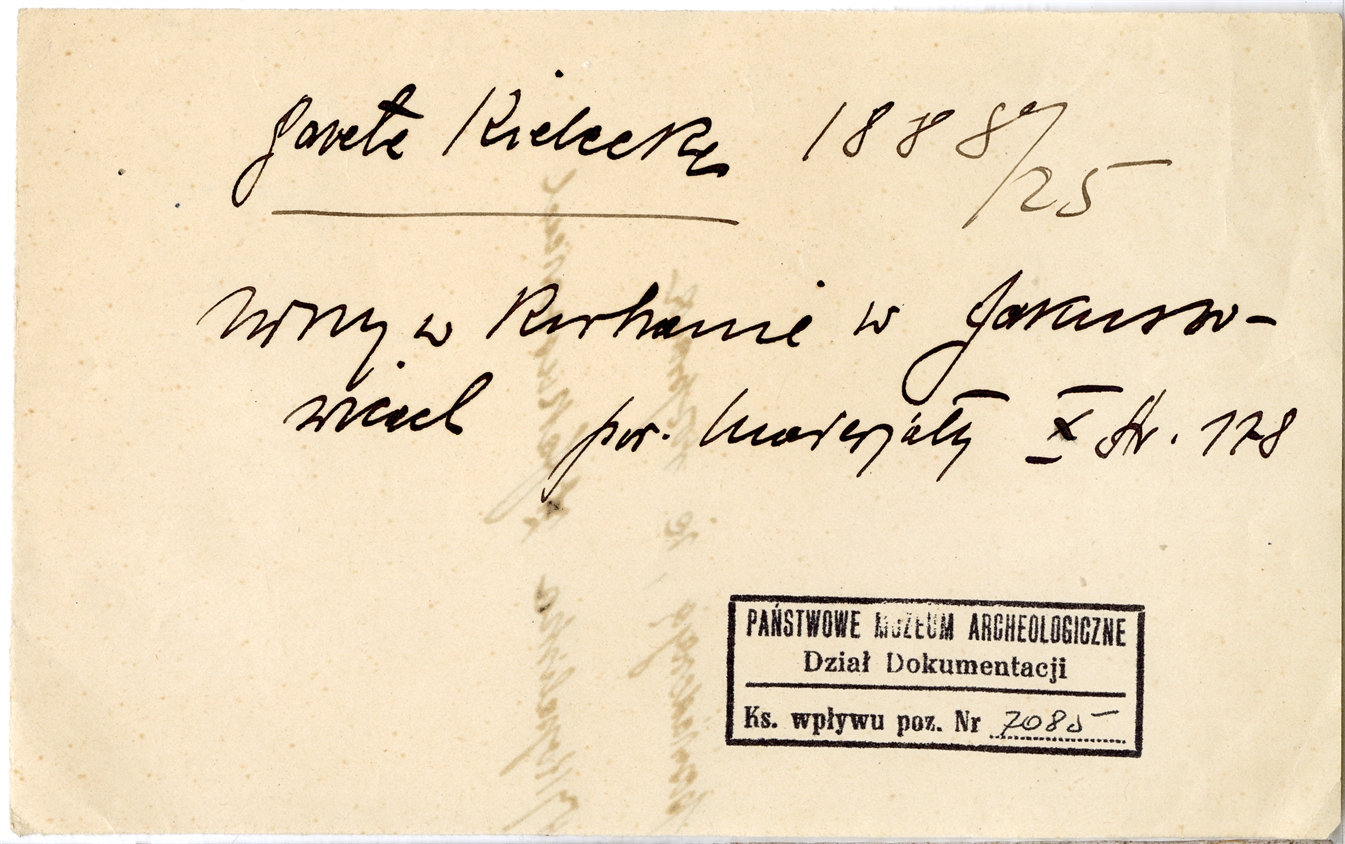 Gazeta Kielecka 1888
/25
w Kurhanie w Jakuszo-
wicach por. Materjały X str. 178
PAŃSTWOWE MUZEUM ARCHEOLOGICZNE
Dział Dokumentacji
Ks. wpływu poz. Nr 7085